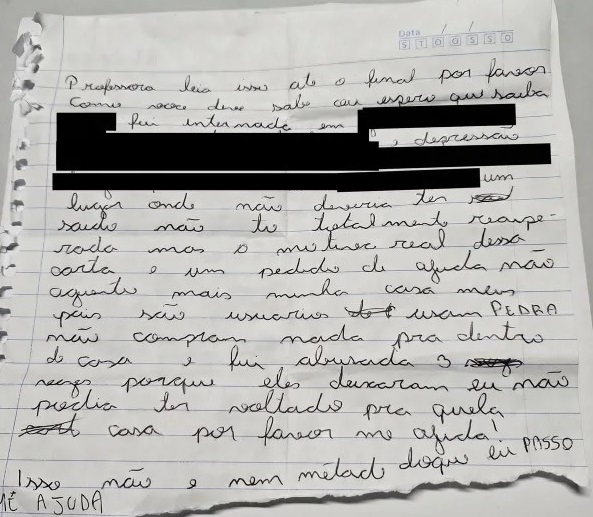 Data / /
S T Q Q S S D
Professora leia isso até o final por favor
Como voce deve sabe eu espero que saiba
fui internada em
, depressão
um
lugar onde não deveria ter
saido não to totalmente recupe-
rada mas o motivo real dessa
carta e um pedido de ajuda não
aguento mais minha casa meus
pais são usuarios usam PEDRA
não compram nada pra dentro
de casa e fui abusada 3
vezes porque eles deixaram eu não
podia ter voltado pra quela
casa por favor me ajuda!
Isso não e nem métade doque eu PASSO
ME AJUDA